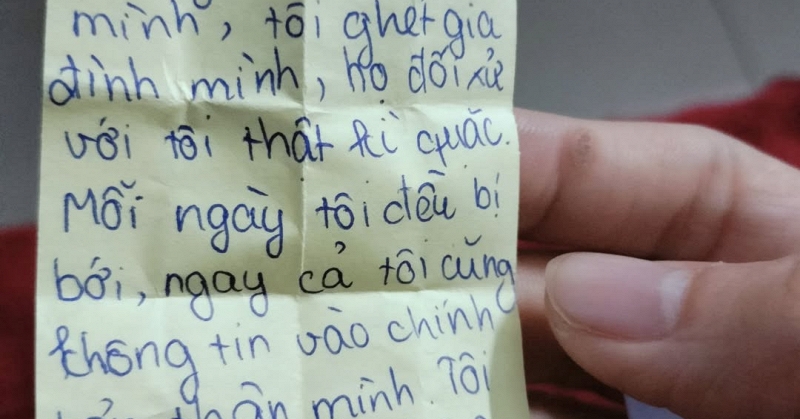 mình, tôi ghét gia
đình mình, họ đối xử
với tôi thật kì quặc.
Mỗi ngày tôi đều bị
bới, ngay cả tôi cũng
không tin vào chính
bản thân mình. Tôi